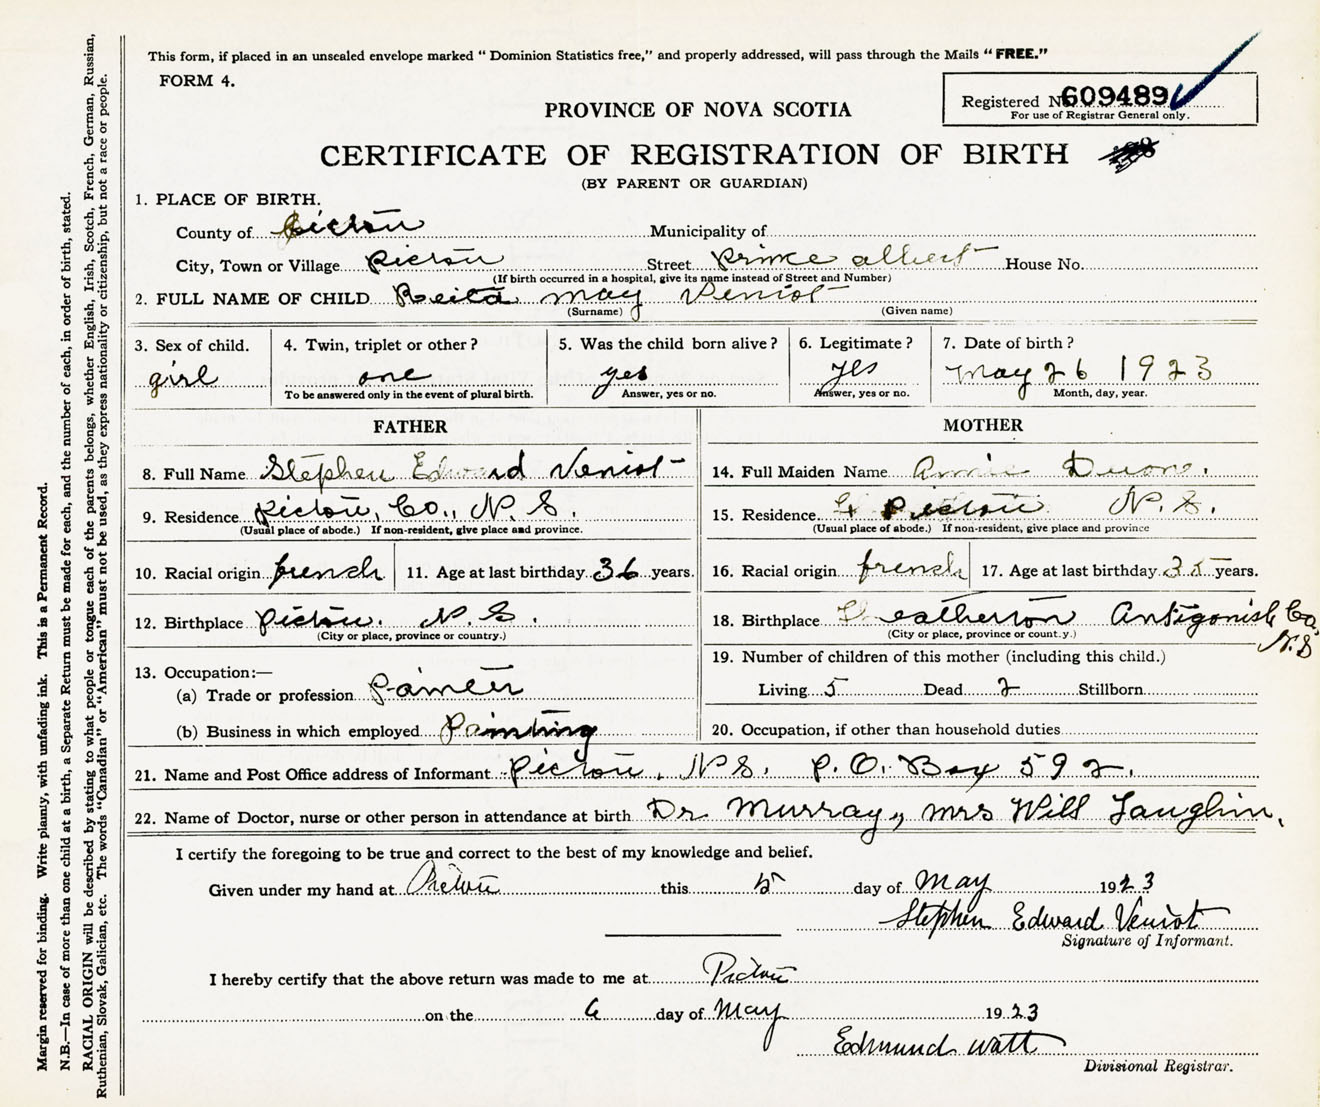 This form, if placed in an unsealed envelope marked "Dominion Statistics free," and properly addressed, will pass through the Mails "FREE."
FORM 4.
Registered No. 609489
For use of Registrar General only.
PROVINCE OF NOVA SCOTIA
CERTIFICATE OF REGISTRATION OF BIRTH
(BY PARENT OR GUARDIAN)
1. PLACE OF BIRTH.
County of Pictou Municipality of
City, Town or Village Pictou Street Prince albert House No.
(If birth occurred in a hospital, give its name instead of Street and Number)
2. FULL NAME OF CHILD Reita may Veniot
(Surname) (Given name)
3. Sex of child. 4. Twin, triplet or other? 5. Was the child born alive? 6. Legitimate? 7. Date of birth?
girl one yes yes May 26 1923
To be answered only in the event of plural birth. Answer, yes or no. Answer, yes or no. Month, day, year.
FATHER MOTHER
8. Full Name Stephen Edward Veniot 14. Full Maiden Name Annie
9. Residence Pictou, Co., N.S. 15. Residence Pictou N.S.
(Usual place of abode.) If non-resident, give place and province. (Usual place of abode.) If non-resident, give place and province
10. Racial origin french 11. Age at last birthday 36 years. 16. Racial origin french 17. Age at last birthday 35 years.
12. Birthplace Pictou. N.S. 18. Birthplace Heatherton Antigonish Co, N.S
(City or place, province or country.) (City or place, province or count.y.)
13. Occupation:— 19. Number of children of this mother (including this child.)
(a) Trade or profession Painter Living 5 Dead 2 Stillborn
(b) Business in which employed Painting 20. Occupation, if other than household duties
21. Name and Post Office address of Informant Pictou, N.S. P.O. Box 592.
22. Name of Doctor, nurse or other person in attendance at birth Dr Murray, mrs Will Laughlin,
I certify the foregoing to be true and correct to the best of my knowledge and belief.
Given under my hand at Pictou this 5 day of May 1923
Stephen Edward Veniot
Signature of Informant.
I hereby certify that the above return was made to me at Pictou
on the 6 day of May 1923
Edmund Watt
Divisional Registrar.
Margin reserved for binding. Write plainly, with unfading ink. This is a Permanent Record.
N.B.—In case of more than one child at a birth, a Separate Return must be made for each, and the number of each, in order of birth, stated.
RACIAL ORIGIN will be described by stating to what people or tongue each of the parents belongs, whether English, Irish, Scotch, French, German, Russian,
Ruthenian, Slovak, Galician, etc. The words "Canadian" or "American" must not be used, as they express nationality or citizenship, but not a race or people.